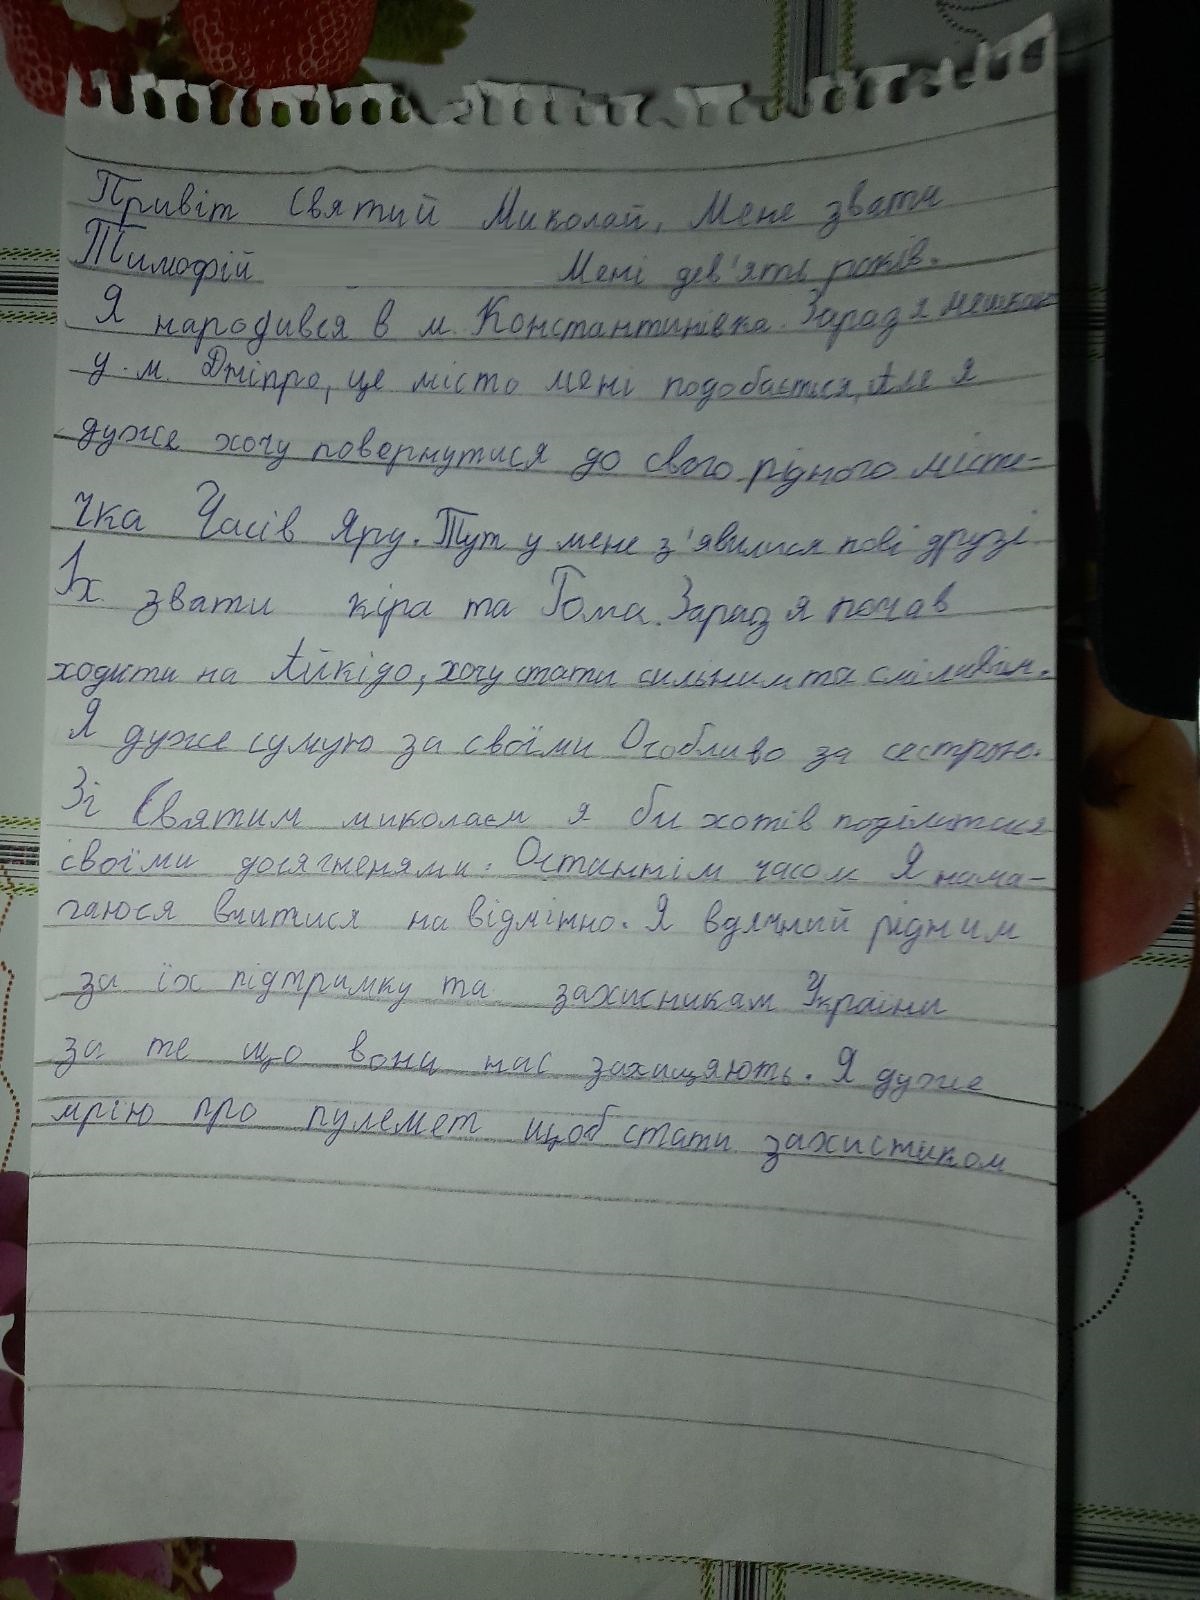 Привіт Святий Миколай, Мене звати
Тимофій Мені дев'ять років.
Я народився в м. Константинівка. Зараз я мешкаю
у м. Дніпро, це місто мені подобається, Але я
дуже хочу повернутися до свого рідного місте-
чка Часів Яру. Тут у мене з'явилися нові друзі
Їх звати кіра та Тома. Зараз я почав
ходити на Айкідо, хочу стати сильним та сміливім.
Я дуже сумую за своїми Особливо за сестрою.
Зі Святим миколаєм я би хотів поділитися
своїми досягненями. Останнім часом Я нама-
гаюся вчитися на відмінно. Я вдячний рідним
за їх підтримку та захисникам України
за те що вони нас захищяють. Я дуже
мрію про пулемет щоб стати захистиком